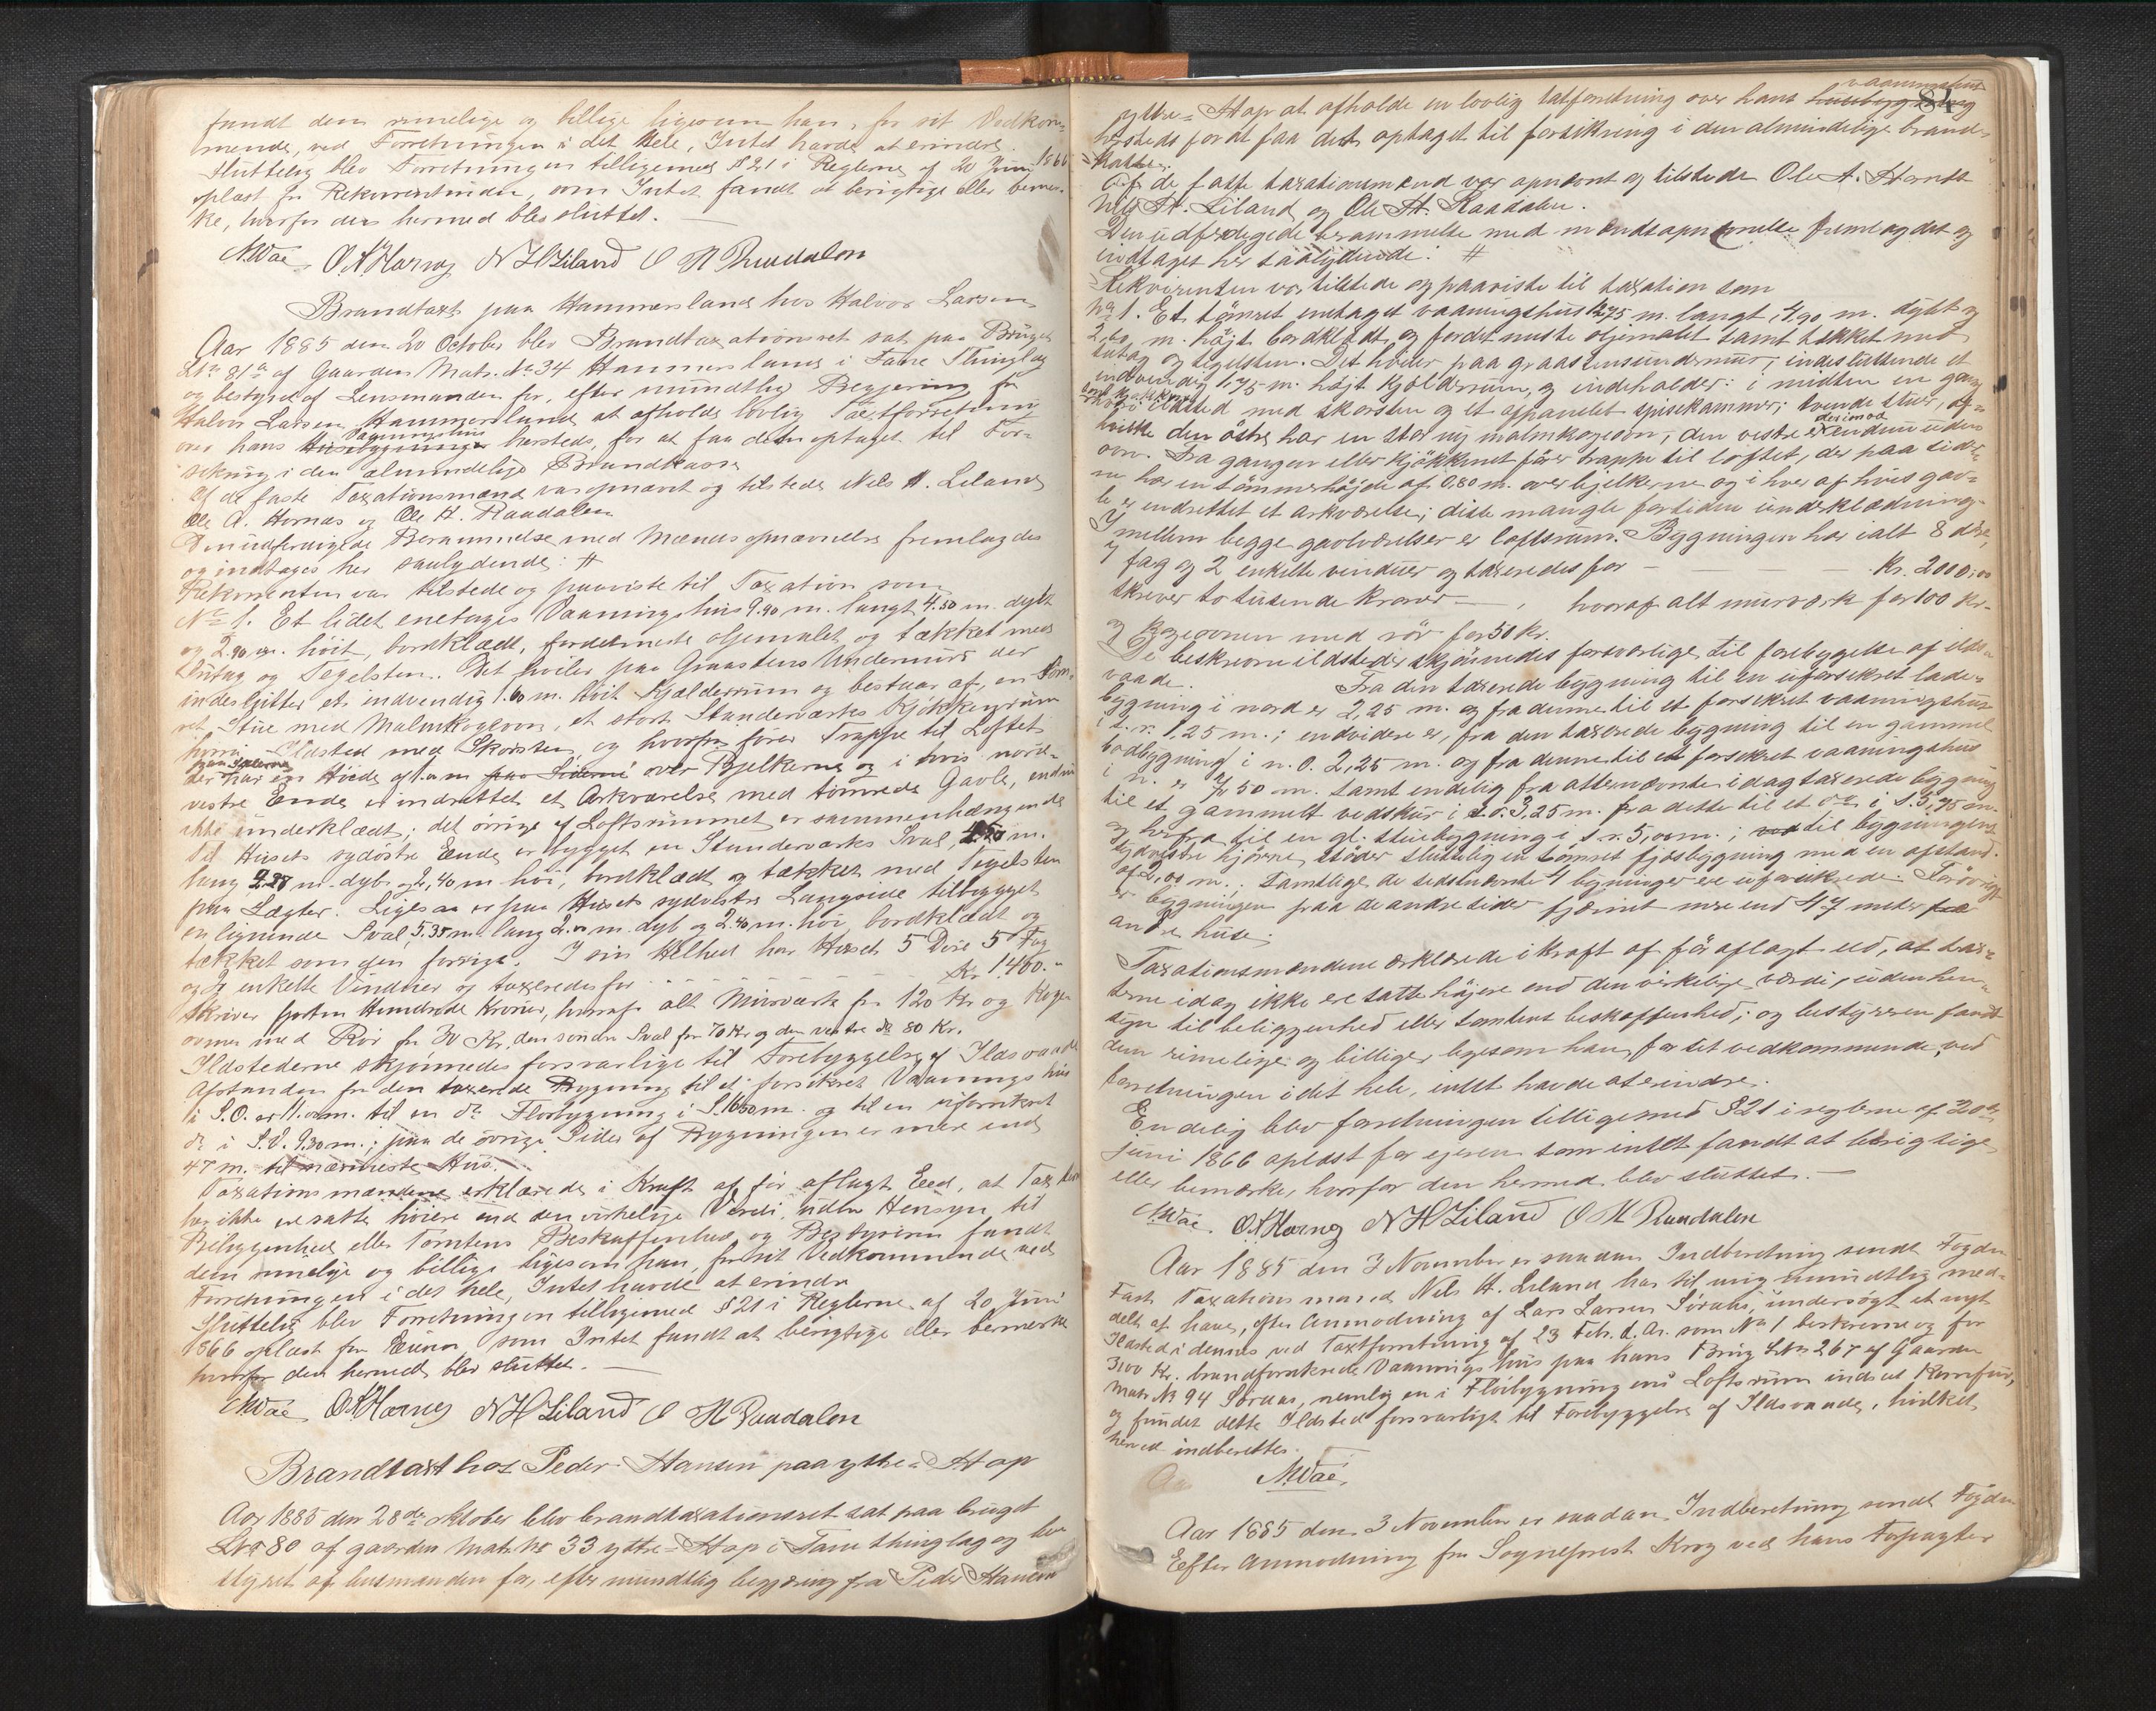 fundt dem rimelige og billige ligesom han, for sit Vedkom-
mende, ved Forretningen i det Hele, Intet havde at erindre.
Sluttelig blev Forretningen tilligemed § 21 i Reglerne af 20 Juni 1866
oplæst for Rekvirentinden, som Intet fandt at berigtige eller bemær-
ke, hvorfor den hermed blev sluttet.
NWae OAHarnes NHLiland O H Raadalen
Brandtaxt paa Hammersland hos Halvor Larsen
Aar 1885 den 20 October blev Brandtaxationsret sat paa Bruget
LNo 81a af Gaarden Matr. No 34 Hammersland i Fane Thinglag
og bestyret af Lensmanden for, efter mundtlig Begjering fra
Halvor Larsen Hammersland at afholde lovlig Taxtforretning
over hans Vaaningshus hersteds, for at faa dette optaget til For-
sikring i den almindelige Brandkasse
Af de faste Taxationsmænd var opnævnt og tilstede Nels H. Leland
Ole A. Hornæs og Ole H. Raadalen
Den udferdigede Berammelse med Mænds opnævnelse fremlagdes
og indtages her saalydende: #
Rekvirenten var tilstede og paaviste til Taxation som
No 1. Et lidet enetages Vaaningshus 9.90 m. langt 4.50 m. dybt
og 2.90 m. høit, bordklædt, fordetmeste oljemalet og tækket med
Sutag og Tegelsten. Det hviler paa Graastens Undermur der
indeslutter et indvendig 1.60 m. høit Kjælderrum og bestaar af, en Tøm-
ret Stue med Malmkogeovn, et stort Standerværks Kjøkkenrum
hvori Ildsted med Skorsten og hvorfra fører Trappe til Loftet
der paa Siderne har en Høide af 1.00 m paa Siderne over Bjelkerne og i hvis nord-
vestre Ende er indrettet et Arkværelse med tømrede Gavle, endnu
ikke underklædt; det øvrige af Loftsrummet er sammenhængende
Til Husets sydøstre Ende er bygget en Standerværks Sval, m.
lang m. dyb og 2,40 m høi, bordklædt og tækket med Tegelsten
paa Lægter. Ligesaa er paa Husets sydvestre Langside tilbygget
en lignende Sval 5.35 m. lang 2.00 m. dyb og 2.40 m. høi bordklædt og
tækket som den forrige. I sin Helhed har Huset 5 Døre 5 Fag
og 2 enkelte Vinduer og taxeredes for - - - Kr 1.400.-
skriver fjorten Hundrede Kroner, hvoraf alt Murværk for 120 Kr og Koge-
ovnen med Rør for 30 Kr, den søndre Sval for 70 Kr og den vestre do 80 Kr.
Ildstederne skjønnedes forsvarlige til Forebyggelse af Ildsvaade
Afstanden fra den taxerede Bygning til et forsikret Vaaningshus
i S.O. er 11.00 m. til en do Florbygning i S. 16.50 m. og til en uforsikret
do i S.V. 9.30 m.; paa de øvrige Sider af Bygningen er mere end
47 m. til nærmeste Hus.
Taxationsmændene erklærede i Kraft af før aflagt Eed, at Taxterne
her ikke er satte høiere end den virkelige Værdi, uden Hensyn til
Beliggenhed eller Tomtens Beskaffenhed, og Bestyreren fandt
dem rimelige og billige ligesom han, for sit Vedkommende ved
Forretningen i det hele, Intet havde at erindre
Sluttelig blev Forretningen tilligemed § 21 i Reglerne af 20 Juni
1866 oplæst for Eieren som Intet fandt at berigtige eller bemærke
hvorfor den hermed blev sluttet.
NWae OAHarnes NHLiland O H Raadalen
Brandtaxt hos Peder Hansen paa ytre-Hop
Aar 1885 den 28de oktober blev brandtaxationsret sat paa bruget
LNo 80 af gaarden Matr. No 33 yttre-Hop i Fane thinglag og be-
styret af lensmanden for, efter mundtlig begjæring fra Peder Hansen
84
yttre-Hop at afholde en lovlig taxtforretning over hans husebygning vaaningshus
hersteds for at faa det optaget til forsikring i den almindelige brand-
kasse.
Af de faste taxationsmænd var opnævnt og tilstede Ole A. Hornæs
Nils H. Liland og Ole H. Raadalen.
Den udfærdigede berammelse med mændsopnævnelse fremlagdes og
indtages her saalydende: #
Rekvirenten var tilstede og paaviste til taxation som
No 1. Et tømret entaget vaaningshus 12,75 m. langt, 4,90 m. dybt og
2,60 m. højt bordklædt, og fordetmeste oljemalet samt tækket med
sutag og tegelsten. Det hviler paa graastensundermur, indesluttende et
indvendig 1,75 m. højt kjølderrum, og indeholder: i midten en gang
hvori ildsted med skorsten og et oppanelet spisekammer; tvende stuer, af-
hvilke den østre har en stor ny malmkogeovn, den vestre er derimod endnu uden
ovn. Fra gangen eller kjøkkenet fører trappe til loftet, der paa sider-
ne har en tømmerhøjde af 0,80 m. over bjelkerne og i hver af hvis gav-
le er indrettet et arkværelse; disse mangle fortiden underklædning.
Imellem begge gavlværelser er loftsrum. Bygningen har ialt 8 døre,
7 fag og 2 enkelte vinduer og taxeredes for - - Kr. 2000,00
skriver to tusende kroner -, hvoraf alt murværk for 100 kr.
og kogeovnen med rør for 50 kr.
De beskrevne ildsteder skjønnedes forsvarlige til forebyggelse af ilds-
vaade. Fra den taxerede bygning til en uforsikret lade-
bygning i nord er 2,25 m. og fra denne til et forsikret vaaningshus
i n.v. 1,25 m.; endvidere er, fra den taxerede bygning til en gammel
bodbygning i n.o. 2,25 m. og fra denne til et forsikret vaaningshus
i n. er 7,50 m. samt endelig fra oftenævnte idag taxerede bygning
til et gammelt vedskur i s.o. 3,25 m. fra dette til et do i s. 5,75 m.
og herfra til en gl. stuebygning i s.v. 5,00 m.; ved til bygningens
sydvestre hjørne støder sluttelig en tømret fjøsbygning med en afstand
af 2,00 m.. Samtlige de sidstnævnte 4 bygninger ere uforsikrede. Forøvrigt
er bygningen paa de andre sider fjærnet mere end 47 meter fra
andre huse.
Taxationsmændene erklærede i kraft af før aflagt ed, at tax-
terne idag ikke ere satte højere end den virkelige værdi, uden hen-
syn til beliggenhed eller tomtens beskaffenhed; og bestyreren fandt
dem rimelige og billige, ligesom han, for sit vedkommende, ved
forretningen i det hele, intet havde at erindre.
Endelig blev forretningen tilligemed § 21 i reglerne af 20de
juni 1866 oplæst for ejeren som intet fandt at berigtige
eller bemærke, hvorfor den hermed blev sluttet.-
NWae. OAHarnes NHLiland O H Raadalen
Aar 1885 den 3 November er saadan Indberetning sendt Fogden
Fast Taxationsmand Nils H. Liland har til mig mundtlig med-
delt at have, efter Anmodning af Lars Larsen Søraas, undersøgt et nyt
Ildsted i dennes ved Taxtforretning af 23 Feb. d. Ar. som No 1 beskrevne og for
3100 Kr. brandforsikrede Vaaningshus paa hans Brug LNo 267 af Gaarden
Matr. No 94 Søraas, nemlig en i Fløibygning ens Loftsrum indsat Kamfur,
og fundet dette Ildsted forsvarligt til Forebyggelse af Ildsvaade, hvilket
herved indberettes.
NWae.
Aar 1885 den 3 November er saadan Indberetning sendt Fogden
Efter Anmodning fra Sogneprest Krog ved hans Forpagter